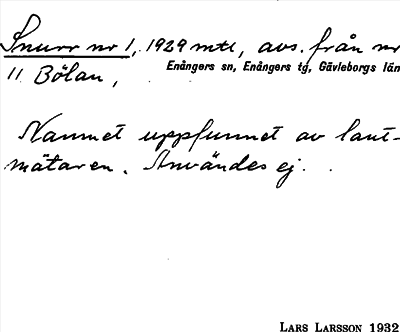 Snurr nr 1, 1929 mtl, avs. från nr
Enångers sn, Enångers tg, Gävleborgs län
11 Bölan,
Namnet uppfunnet av lant-
mätaren. Användes ej.
LARS LARSSON 1932